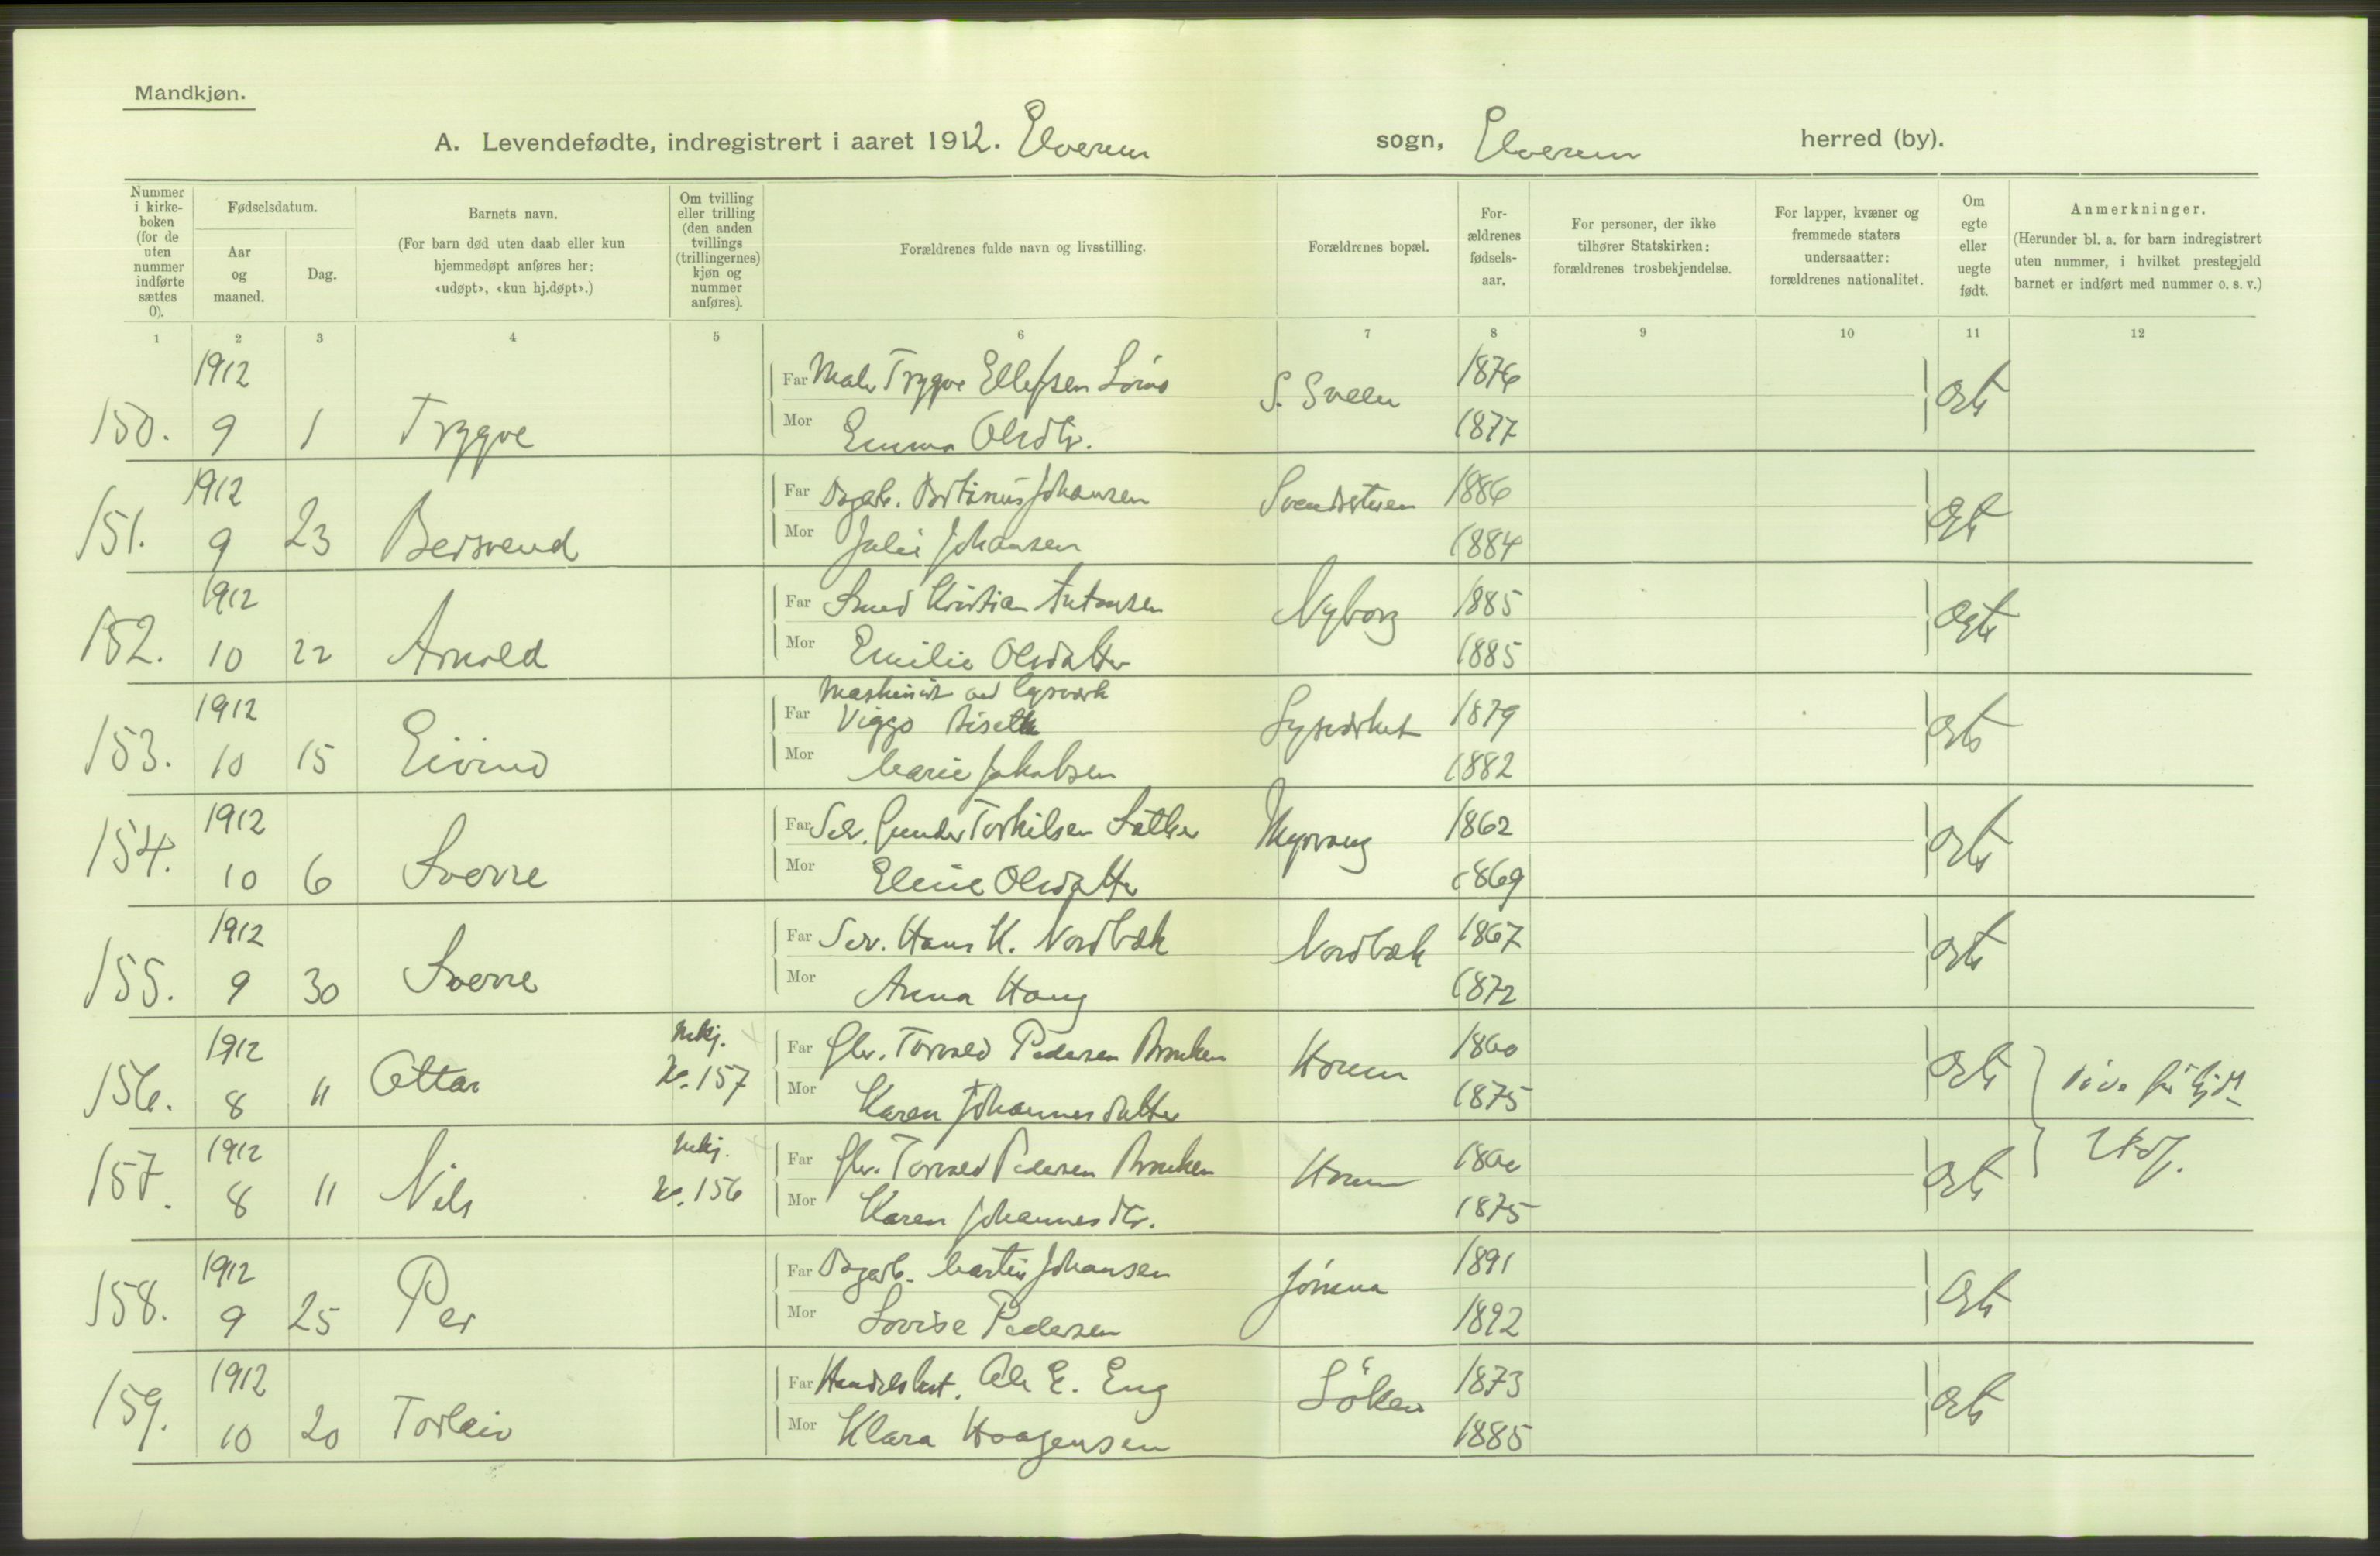 Mandkjøn.
A. Levendefødte, indregistrert i aaret 1912. Elverum sogn, Elverum herred (by).
Nummer i kirke-boken (for de uten nummer indførte sættes 0).
Fødselsdatum.
Aar og maaned.
Dag.
Barnets navn.
(For barn død uten daab eller kun hjemmedøpt anføres her: «udøpt», «kun hj.døpt».)
Om tvilling eller trilling (den anden tvillings (trillingernes) kjøn og nummer anføres).
Forældrenes fulde navn og livsstilling.
Forældrenes bopæl.
For-ældrenes fødsels-aar.
For personer, der ikke tilhører Statskirken: forældrenes trosbekjendelse.
For lapper, kvæner og fremmede staters undersaatter: forældrenes nationalitet.
Om egte eller uegte født.
Anmerkninger.
(Herunder bl. a. for barn indregistrert uten nummer, i hvilket prestegjeld barnet er indført med nummer o. s. v.)
1 2 3 4 5 6 7 8 9 10 11 12
1912 Far Maler Trygve Ellefsen 1876
150. 9 1 Trygve Mor Emma Olsdtr. 1877
1912 Far Dagarb. Johansen Svendstuen 1886
151. 9 23 Bersvend Mor Julie Johansen 1884
1912 Far Smed Kristian Antonsen Nyborg 1885
152. 10 22 Arnold Mor Emilie Olsdatter 1885 Egte
Maskinist ved lysverk
1912 Far Viggo Lysverket 1879
153. 10 15 Eivind Mor Marie Jakobsen 1882
1912 Far Selv. Gunder Torkilsen Sæther Myrvang 1862
154. 10 6 Sverre Mor Eline Olsdatter 1869
1912 Far Selv. Hans K. Nordbæk Nordbæk 1867
155. 9 30 Sverre Mor Anna Haug 1872
1912 Mkj. Far Torvald Pedersen 1860
156. 8 11 Ottar No. 157 Mor Karen Johannesdatter 1875
1912 Mkj. Far Torvald Pedersen 1860
157. 8 11 Nils No. 156 Mor Karen Johannesdtr. 1875
1912 Far Dagarb. Martin Johansen Jømna 1891
158. 9 25 Per Mor Lovise Pedersen 1892
1912 Far Handelsbest. Ole E. Eng Løken 1873
159. 10 20 Torleiv Mor Klara Haagensen 1885